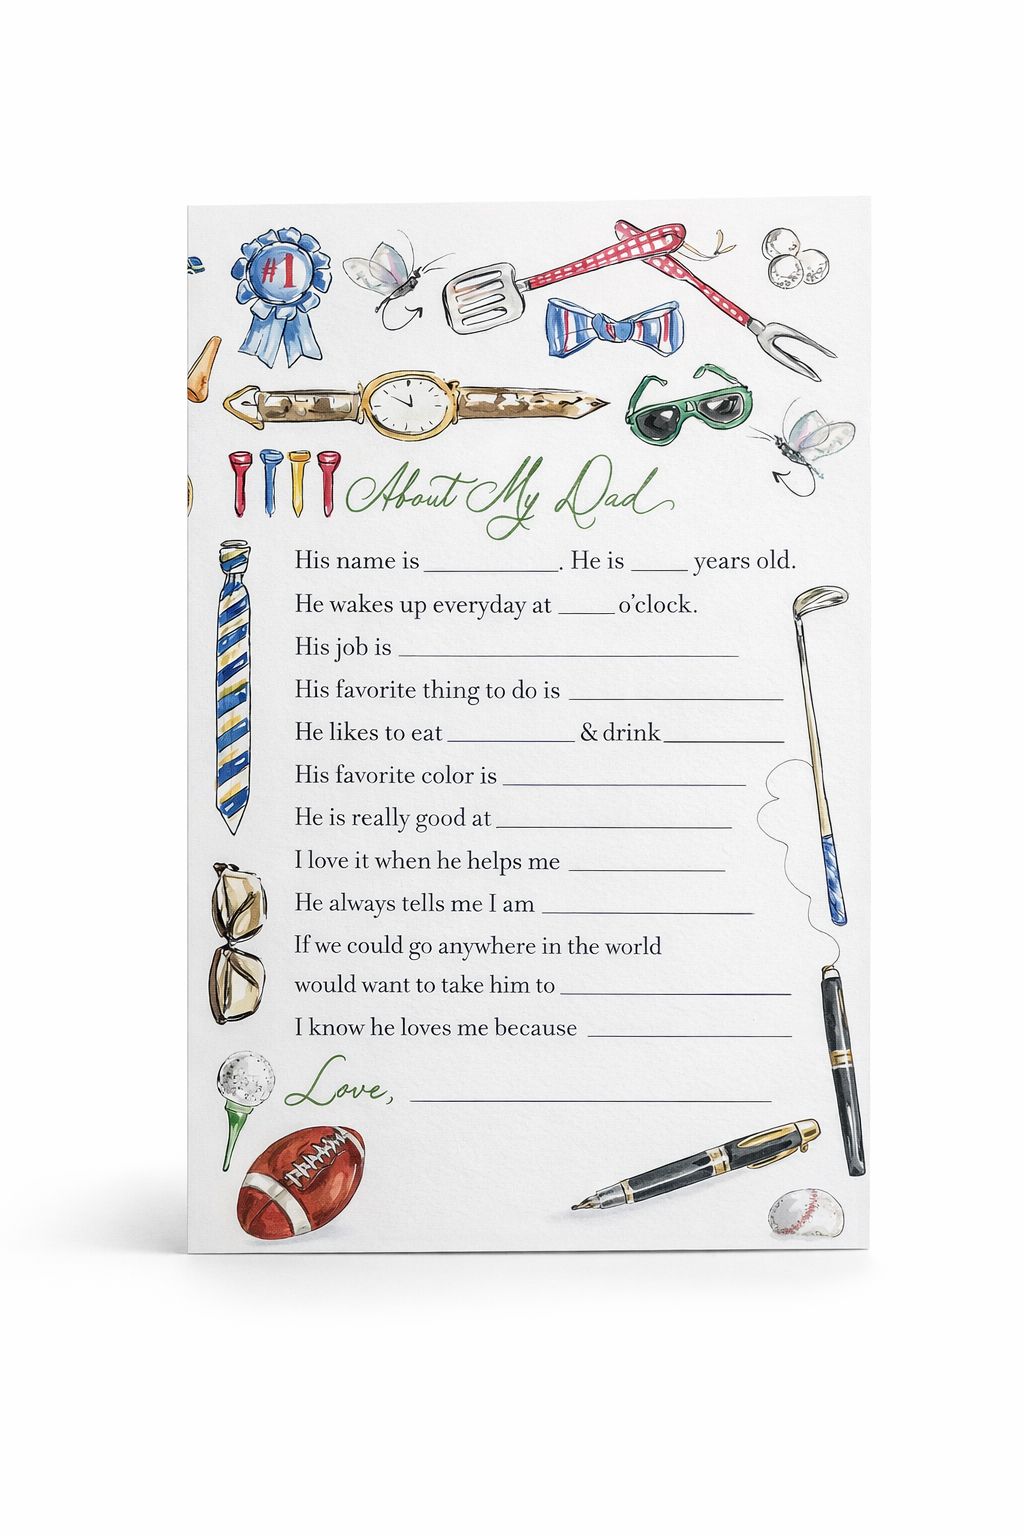 #1
About My Dad
His name is __________. He is ____ years old.
He wakes up everyday at ____ o’clock.
His job is ____________________
His favorite thing to do is ____________
He likes to eat ________ & drink ________
His favorite color is ______________
He is really good at ______________
I love it when he helps me __________
He always tells me I am ____________
If we could go anywhere in the world
would want to take him to ____________
I know he loves me because ____________
Love, ____________________